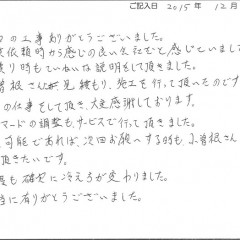 ご記入日 2015年 12月
の工事ありがとうございました。
依頼時から感じの良い会社だと感じていまし
り時もていねいな説明をして頂きました。
曽根さんが見積もり、施工を行って頂いたのです
の仕事をして頂き、大変感謝しております。
マードの調整も、サービスで行って頂きました。
可能であれば、次回お願いする時も、小曽根さん
頂きたいです。
も確実に冷えるが変わりました。
に有りがとうございました。